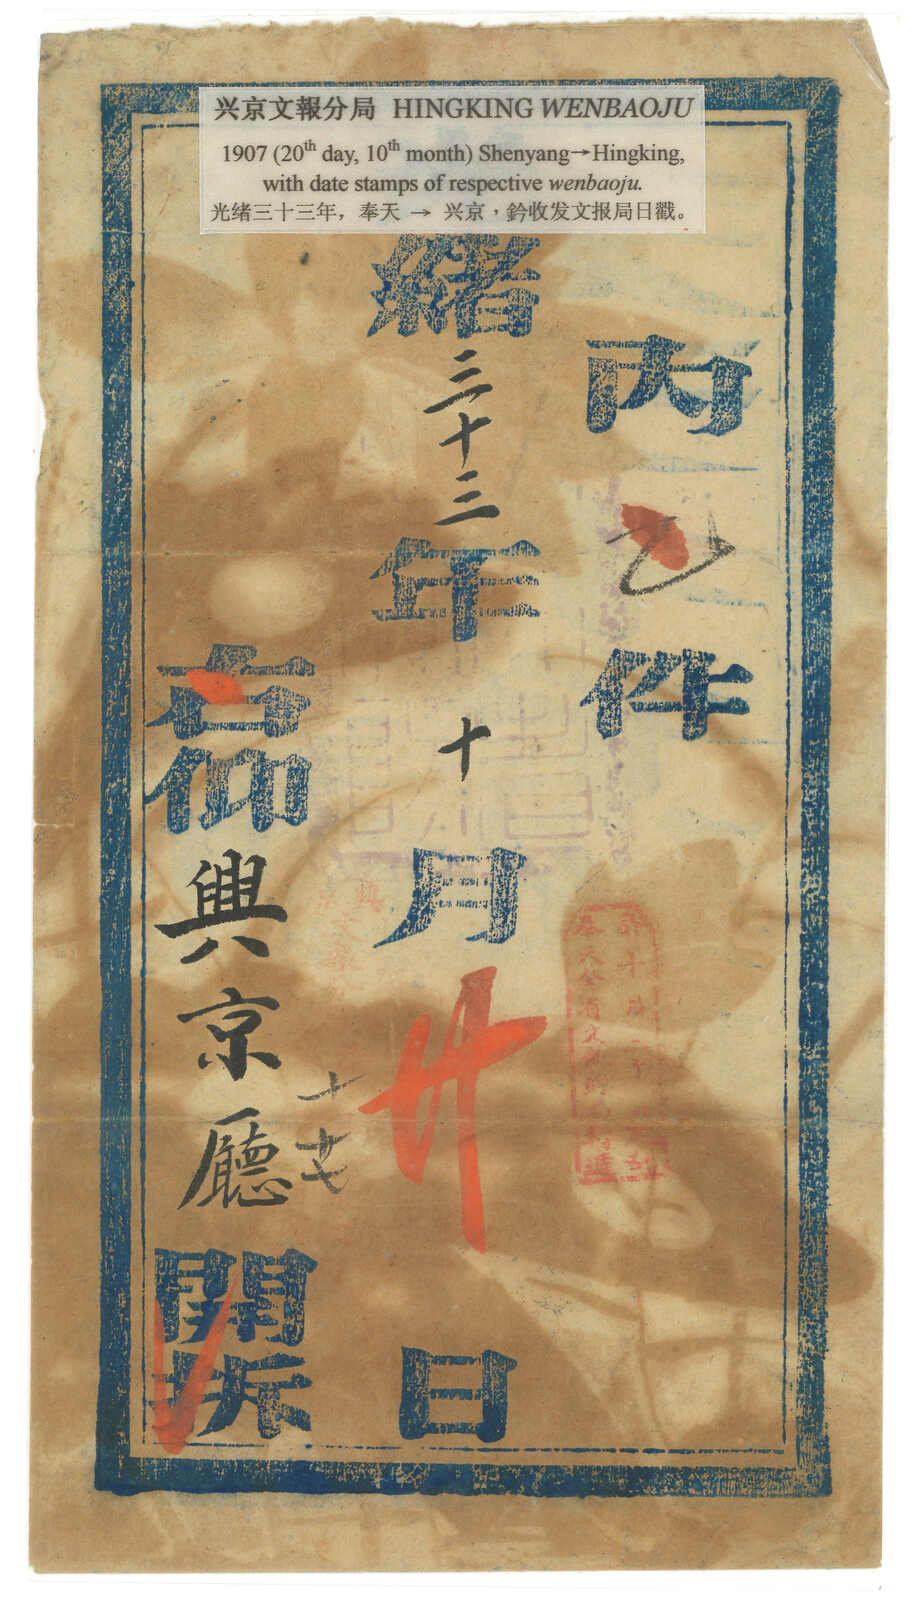 兴京文報分局 HINGKING WENBAOJU
1907 (20th day, 10th month) Shenyang→Hingking,
with date stamps of respective wenbaoju.
光绪三十三年，奉天 → 兴京，鈐收发文报局日戳。
內乙件
緒三十三年十月廿日
右仰興京廳開拆
十
廿七